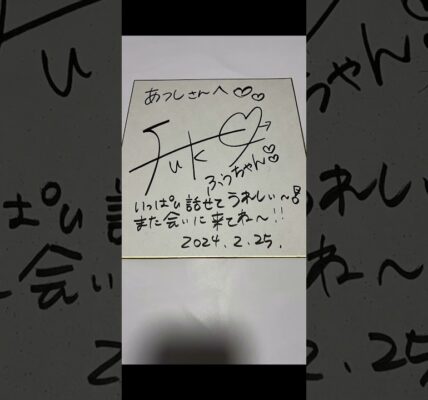 あつしさんへ♡♡
Fuk
ふうちゃん♡♡
いっぱい話せてうれしい〜!
また会いに来てね〜!!
2024.2.25.